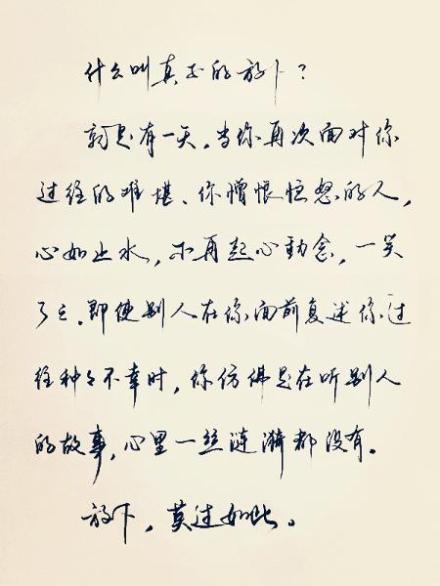 什么叫真正的放下?
就是有一天,当你再次面对你
过往的难堪、你憎恨恒怨的人,
心如止水,不再起心動念,一笑
了之.即使别人在你面前复述你过
往种々不幸时,你仿佛是在听别人
的故事,心里一丝涟漪都没有。
放下,莫过如此。